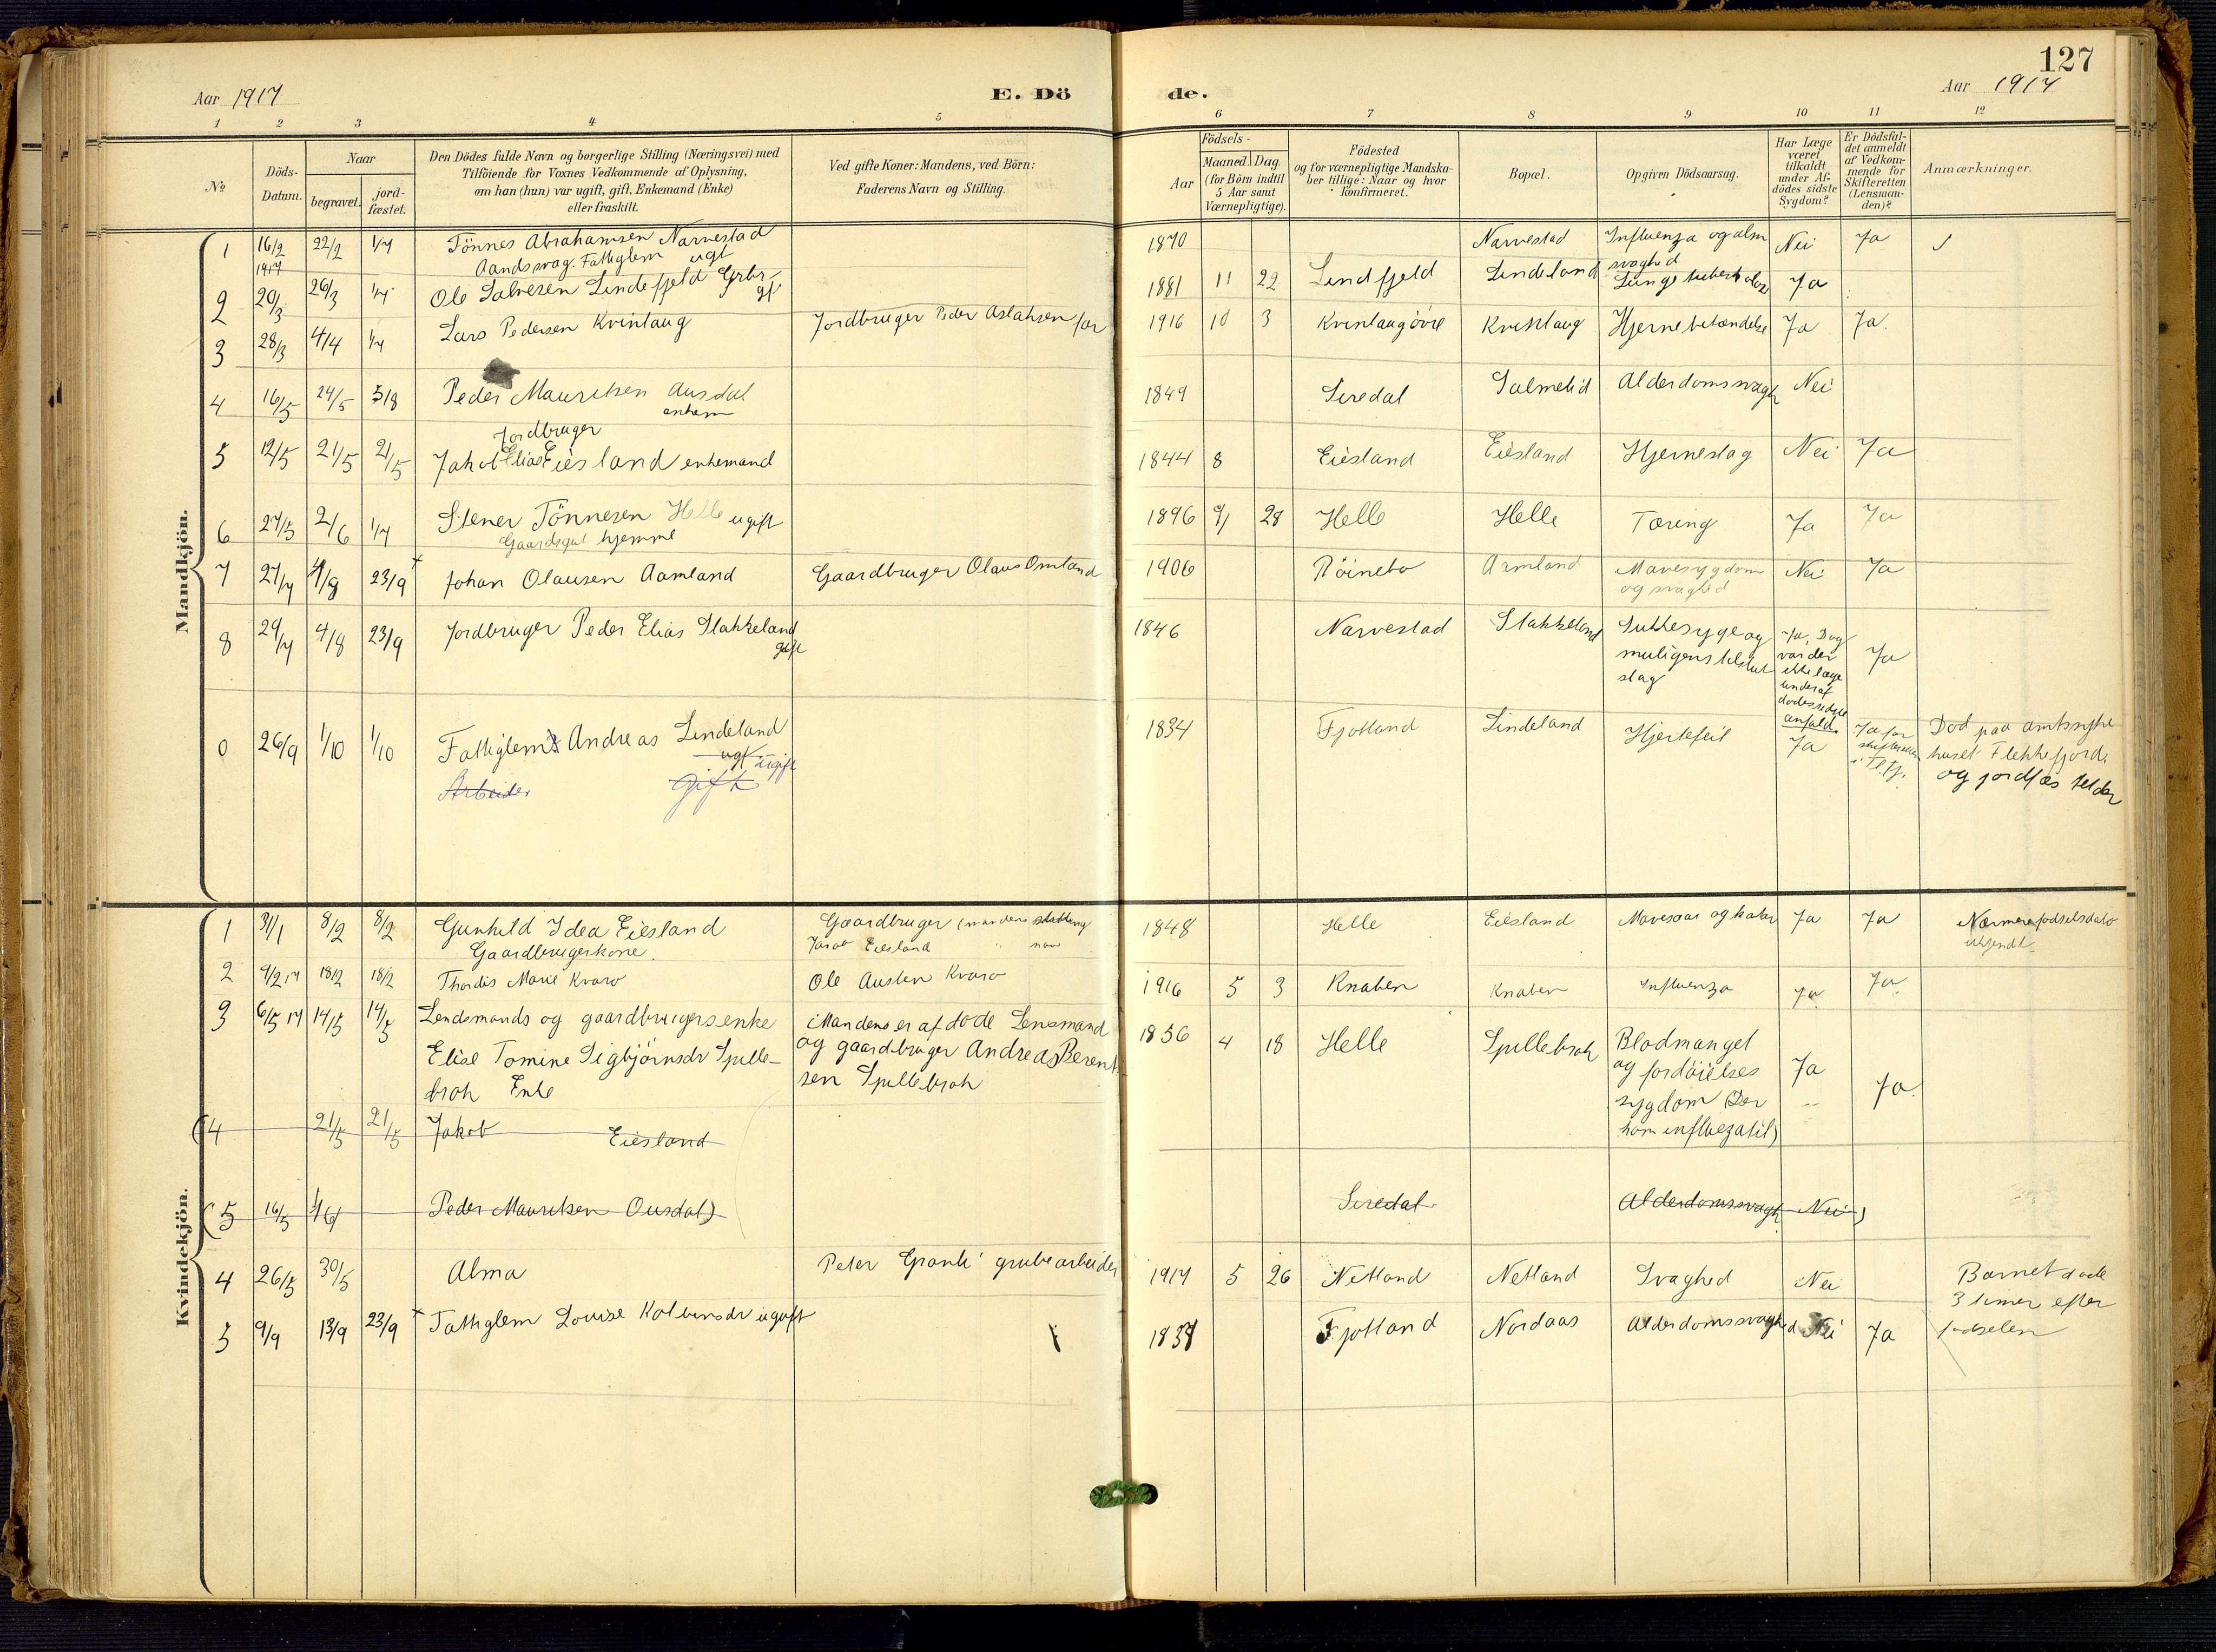 127
Aar 1917
E. Dö
de.
Aar 1917
1 2 3 4 5 6 7 8 9 10 11 12
№
Döds-Datum.
Naar
begravet.
jord-fæstet.
Den Dödes fulde Navn og borgerlige Stilling (Næringsvei) med
Tilföiende for Voxnes Vedkommende af Oplysning,
om han (hun) var ugift, gift, Enkemand (Enke)
eller fraskilt.
Ved gifte Koner: Mandens, ved Börn:
Faderens Navn og Stilling.
Födsels-
Aar
Maaned. Dag.
(for Börn indtil
5 Aar samt
Værnepligtige).
Födested
og for værnepligtige Mandska-
ber tillige: Naar og hvor
konfirmeret.
Bopæl.
Opgiven Dödsaarsag.
Har Læge
været
tilkaldt
under Af-
dödes sidste
Sygdom?
Er Dödsfal-
det anmeldt
af Vedkom-
mende for
Skifteretten
(Lensman-
den)?
Anmærkninger.
Mandkjön.
1 16/2 1917 22/2 1/7 Tönnes Abrahamsen Narvestad 1870 Narvestad Influenza og alm Nei Ja
Aandssvag. Fattiglem ugt svaghed
2 20/3 26/3 1/7 Ole Salvesen Lindefjeld Grbr. gf. 1881 11 22 Lindfjeld Lindeland Lungetuberkulose Ja
3 28/3 4/4 1/7 Lars Pedersen Kvinlaug Jordbruger Peder Aslaksen far 1916 10 3 Kvinlaug övre Kvinlaug Hjernebetændelse Ja Ja.
4 16/5 24/5 5/8 Peder Mauritsen Ausdal 1849 Siredal Salmelid Alderdomssvagh Nei
enkem
Jordbruger
5 12/5 21/5 21/5 Jakob Elias Eiesland enkemand 1844 8 Eiesland Eiesland Hjerneslag Nei Ja
6 27/5 2/6 1/7 Stener Tönnesen Helle ugift 1896 9/ 28 Helle Helle Tæring Ja Ja
Gaardsgut hjemme
7 27/7 4/8 23/9 Johan Olausen Aamland Gaardbruger Olaus Omland 1906 Röinebo Aamland Mavesygdom Nei Ja
og svaghed
8 29/7 4/8 23/9 Jordbruger Peder Elias Stakkeland 1846 Narvestad Stakkeland Sukkesyge og Ja, Dog Ja
gift muligens tilstut var der
slag ikke læge
under af
dødes sidste
anfald.
0 26/9 1/10 1/10 Fattiglem Andreas Lindeland 1834 Fjotland Lindeland Hjertefeil Ja Ja for Död paa amtssyke
ugf ugift huset Flekkefjord.
Arbeider gift og jordfæstet der
Kvindekjön.
1 31/1 8/2 8/2 Gunhild Idea Eiesland Gaardbruger (mandens stilling 1848 Helle Eiesland Mavesaar og katar Ja Ja Nærmere fødselsdato
Gaardbrugerkone. Jakob Eiesland " navn ukjendt
2 9/2 17 18/2 18/2 Thordis Marie Kvaro Ole Austen Kvaro 1916 5 3 Knaben Knaben Influenza Ja Ja
3 6/5 17 14/5 14/5 Lendsmands og gaardbrugersenke Mandens er afdöde Lensmand 1856 4 18 Helle Spillebrok Blodmangel Ja Ja.
Elise Tomine Sigbjörnsdr Spille- og gaardbruger Andreas Berent- og fordöielses
brok Enke sen Spillebrok sygdom (Der
kom influezatil)
(4 21/5 21/5 Jakob Eiesland
(5 16/5 1/6 Peder Mauritsen Ousdal) Siredal Alderdomssvagh Nei)
4 26/5 30/5 Alma Peter Granli grubearbeider 1917 5 26 Netland Netland Svaghed Nei Barnet døde
3 timer efter
fødselen
5 9/9 13/9 23/9 Fattiglem Lovise Kolbensdr ugift 1837 Fjotland Nordaas Alderdomssvaghed Nei Ja